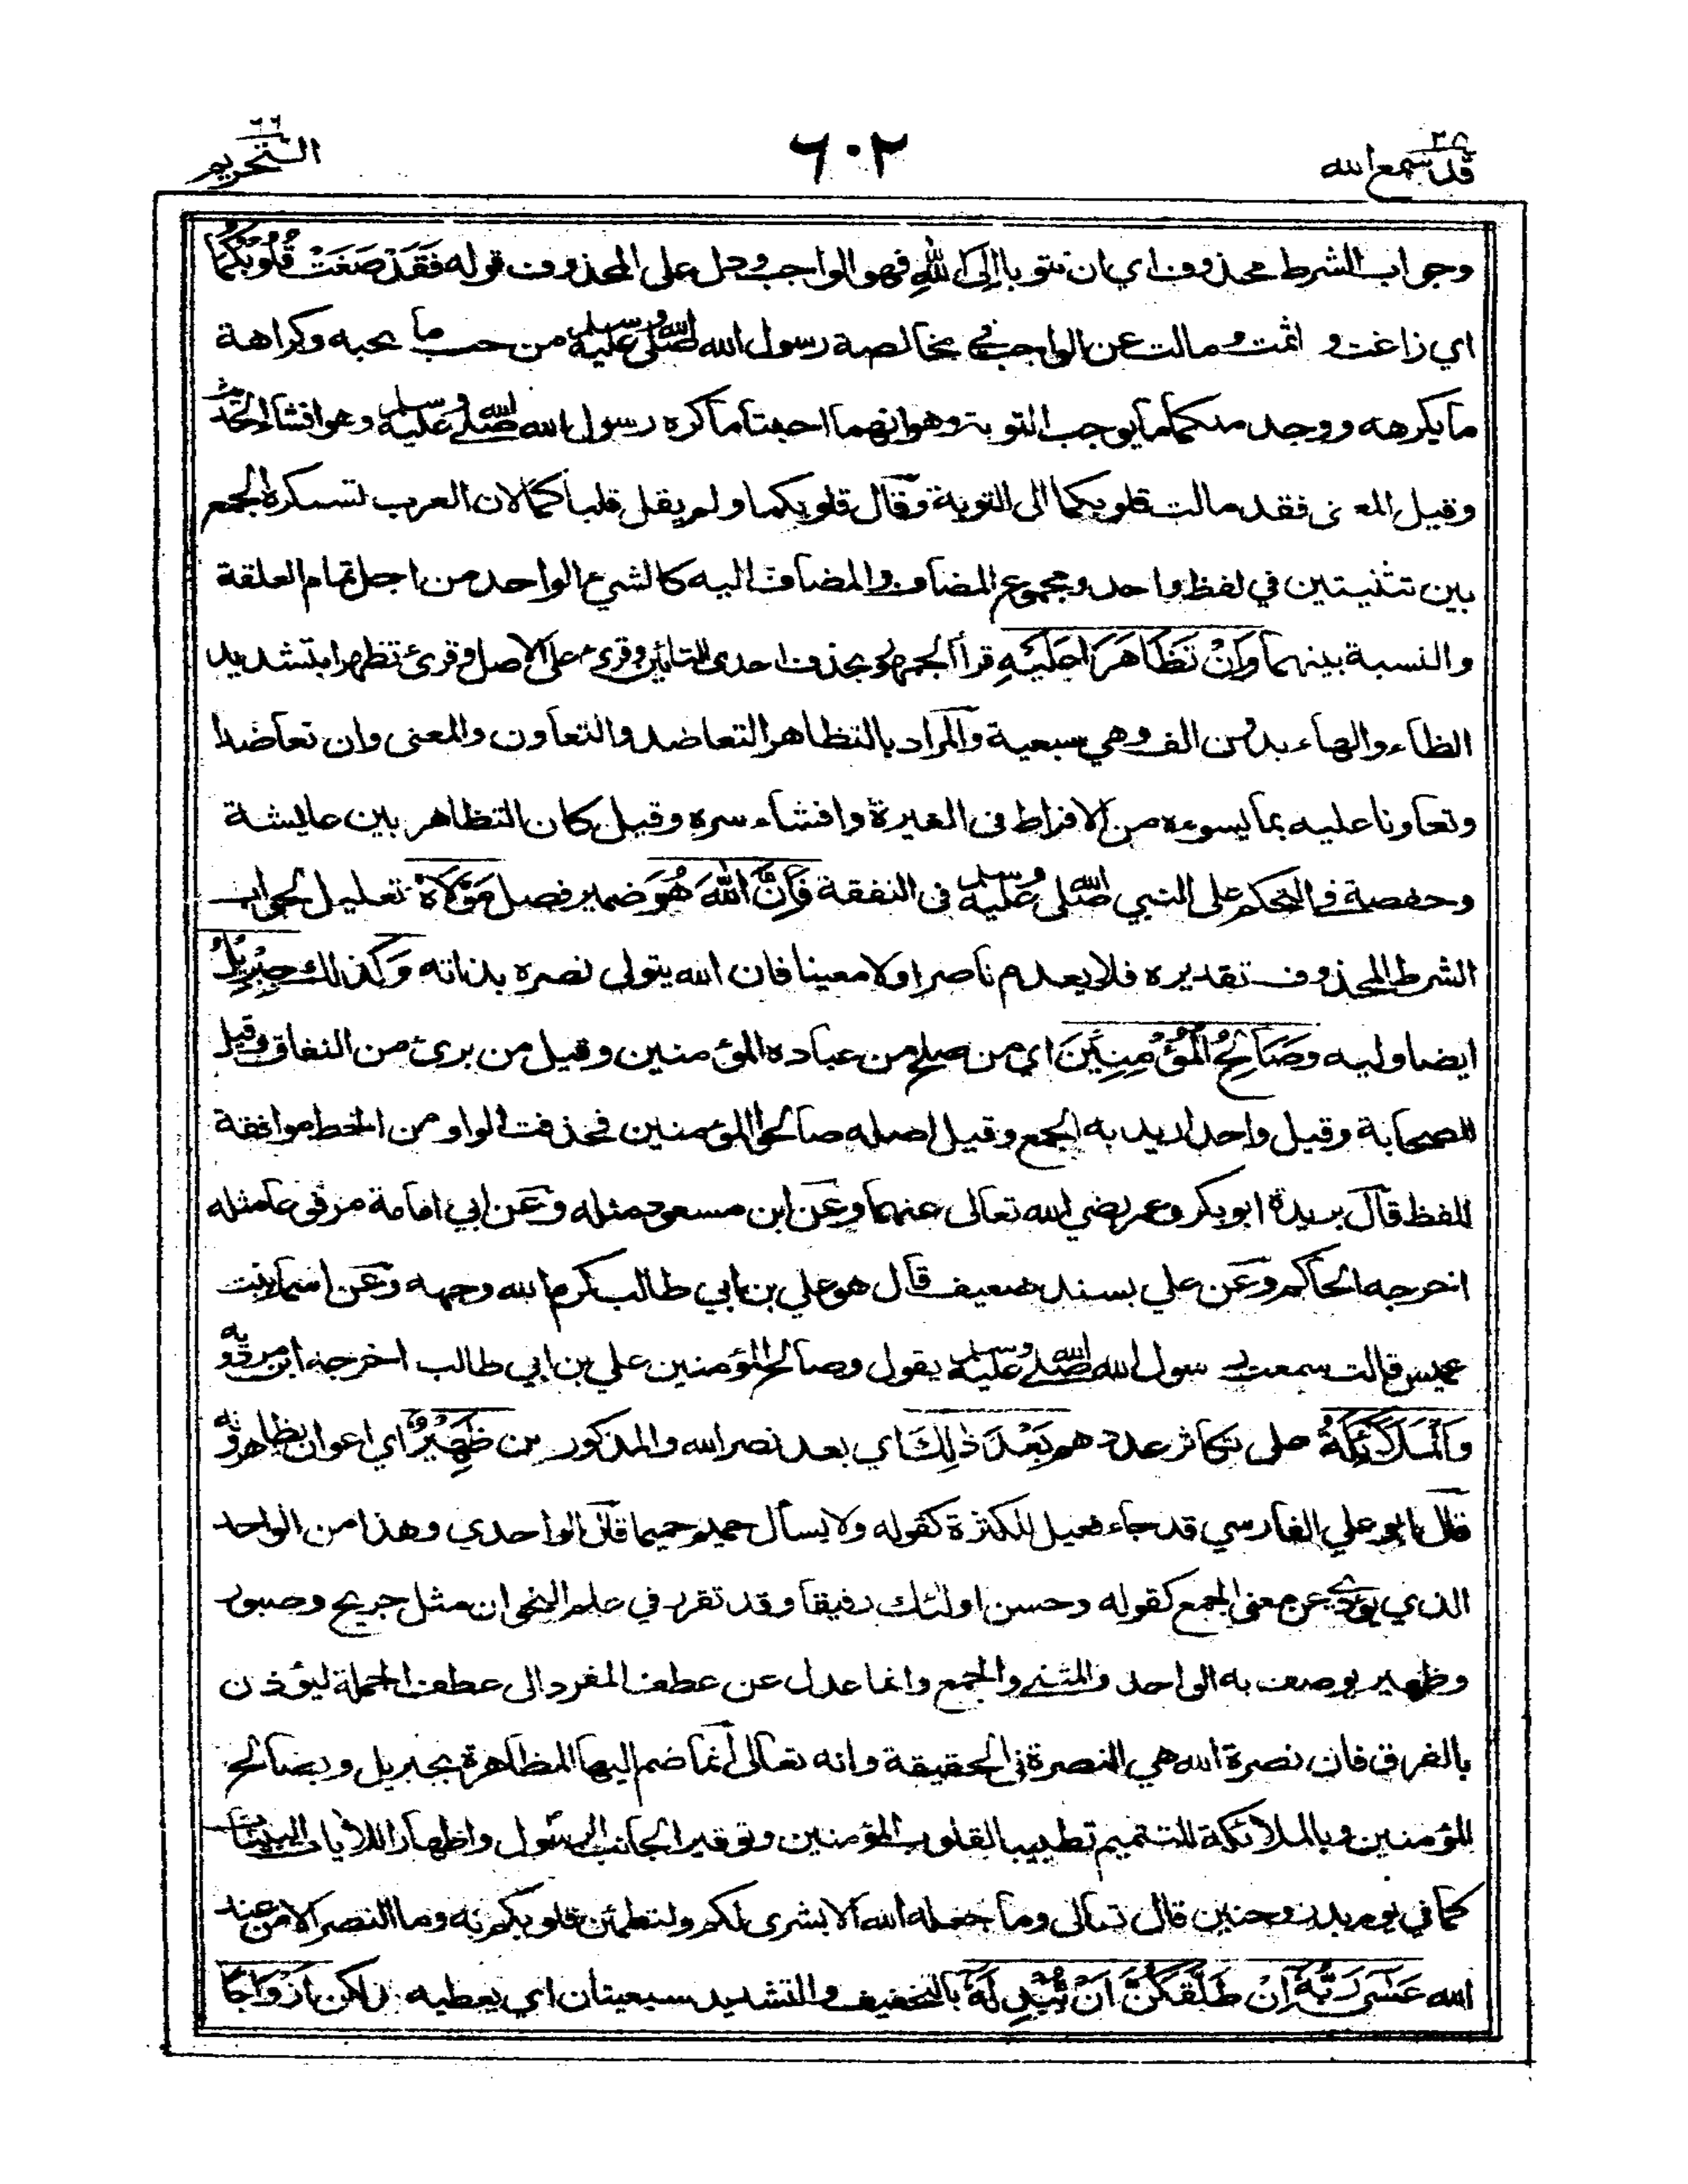 قد سمع الله ٢٨
٦٠٢
التحريم ٦٦
وجواب الشرط محذوف اي ان تتوبا الى الله فهو الواجب ودل على المحذوف قوله فَقَدْ صَغَتْ قُلُوبُكُمَا
اي زاغت واثمت ومالت عن الواجب في مخالصة رسول الله صلى الله عليه وسلم من حب ما يحبه وكراهة
ما يكرهه ووجد منكما ما يوجب التوبة وهو انهما احبتا ما كره رسول الله صلى الله عليه وسلم وهو افشاء الحديث
وقيل المعنى فقد مالت قلوبكما الى التوبة وقال قلوبكما ولم يقل قلباكما لان العرب تستكره الجمع
بين تثنيتين في لفظ واحد ومجموع المضاف والمضاف اليه كالشيء الواحد من اجل تمام العلقة
والنسبة بينهما وَاِنْ تَظَاهَرَا عَلَيْهِ قرأ الجمهور بحذف احدى التائين وقرئ على الاصل وقرئ تظهرا بتشديد
الظاء والهاء بدون الف وهي سبعية والمراد بالتظاهر التعاضد والتعاون والمعنى وان تعاضدا
وتعاونا عليه بما يسوءه من الافراط في الغيرة وافشاء سره وقيل كان التظاهر بين عايشة
وحفصة في التحكم على النبي صلى الله عليه وسلم في النفقة فَاِنَّ اللهَ هُوَ ضمير فصل مَوْلَاهُ تعليل لجواب
الشرط المحذوف تقديره فلا يعدم ناصرا ولا معينا فان الله يتولى نصره بذاته وَ كذلك جِبْرِيْلُ
ايضا وليه وَصَالِحُ الْمُؤْمِنِيْنَ اي من صلح من عباده المؤمنين وقيل من برئ من النفاق وقيل
الصحابة وقيل واحد اريد به الجمع وقيل اصله صالحوا المؤمنين فحذفت الواو من الخط موافقة
للفظ قال بريدة ابو بكر وعمر رضي الله تعالى عنهما وعن ابن مسعود مثله وعن ابي امامة مرفوعا مثله
اخرجه الحاكم وعن علي بسند ضعيف قال هو علي بن ابي طالب كرم الله وجهه وعن اسما بنت
عميس قالت سمعت رسول الله صلى الله عليه وسلم يقول وصالح المؤمنين علي بن ابي طالب اخرجه ابن مردويه
وَالْمَلَائِكَةُ على تكاثر عددهم بَعْدَ ذٰلِكَ اي بعد نصر الله والمذكورين ظَهِيْرٌ اي اعوان يظاهرونه
قال ابو علي الفارسي قد جاء فعيل للكثرة كقوله ولا يسأل حميم حميما قال الواحدي وهذا من الواحد
الذي يؤدي عن معنى الجمع كقوله وحسن اولئك رفيقا وقد تقرر في علم النحو ان مثل جريح وصبور
وظهير يوصف به الواحد والمثنى والجمع وانما عدل عن عطف المفرد الى عطف الجملة ليؤذن
بالفرق فان نصرة الله هي النصرة في الحقيقة وانه تعالى انما ضم اليها المظاهرة بجبريل وبصالح
المؤمنين وبالملائكة للتتميم تطييبا لقلوب المؤمنين وتوقيرا لجانب الرسول واظهارا للايات البينات
كما في يوم بدر وحنين قال تعالى وما جعله الله الا بشرى لكم ولتطمئن قلوبكم به وما النصر الا من عند
الله عَسٰى رَبُّهٗ اِنْ طَلَّقَكُنَّ اَنْ يُبْدِلَهٗ بالتخفيف والتشديد سبعيتان اي يعطيه بدلكن اَزْوَاجًا